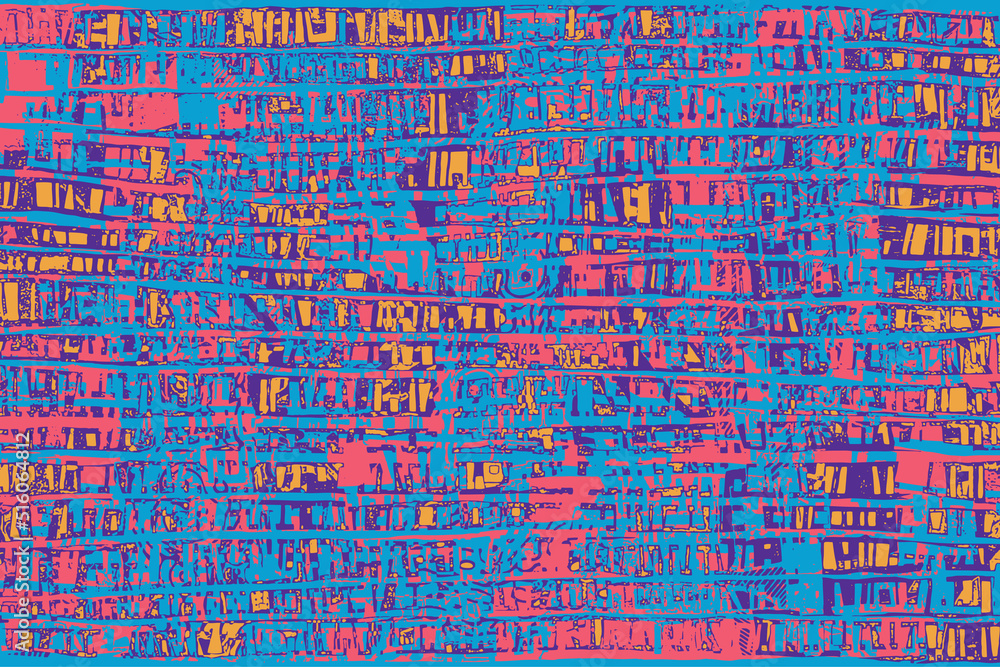 Adobe Stock | #516064812